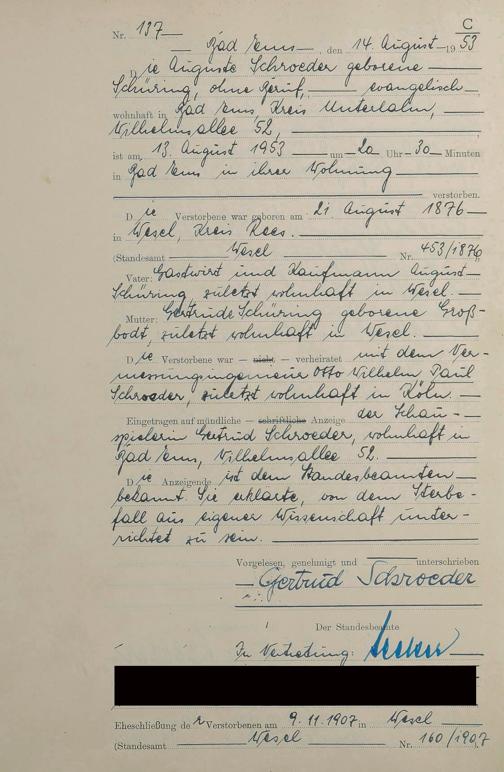 C
Nr. 137
Bad Ems, den 14. August 1953
Die Auguste Schroeder geborene
Schüring, ohne Beruf, evangelisch
wohnhaft in Bad Ems Kreis Unterlahn,
Wilhelmsallee 52,
ist am 13. August 1953 um 20 Uhr 30 Minuten
in Bad Ems in ihrer Wohnung
verstorben.
Die Verstorbene war geboren am 21. August 1876
in Wesel, Kreis Rees.
(Standesamt Wesel Nr. 453/1876
Vater: Gastwirt und Kaufmann August
Schüring, zuletzt wohnhaft in Wesel.
Mutter: Gertrude Schüring geborene Groß-
bodt, zuletzt wohnhaft in Wesel.
Die Verstorbene war — nicht — verheiratet mit dem Ver-
messungsingenieur Otto Wilhelm Paul
Schroeder, zuletzt wohnhaft in Köln.
Eingetragen auf mündliche — schriftliche — Anzeige der Schau-
spielerin Gertrud Schroeder, wohnhaft in
Bad Ems, Wilhelmsallee 52.
Die Anzeigende ist dem Standesbeamten
bekannt. Sie erklärte, von dem Sterbe-
fall aus eigener Wissenschaft unter-
richtet zu sein.
Vorgelesen, genehmigt und unterschrieben
Gertrud Schroeder
Der Standesbeamte
In Vertretung:
Eheschließung der Verstorbenen am 9.11.1907 in Wesel
(Standesamt Wesel Nr. 160/1907)